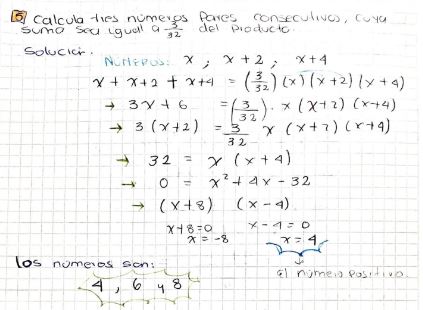 5) Calcula tres números pares consecutivos, cuya
suma sea igual a 3/32 del producto.
Solución.
Números: x ; x+2 ; x+4
x + x+2 + x+4 = (3/32) (x) (x+2) (x+4)
→ 3x + 6 = (3/32) . x (x+2) (x+4)
→ 3 (x+2) = 3/32 x (x+2) (x+4)
→ 32 = x (x+4)
→ 0 = x² + 4x - 32
→ (x+8) (x-4)
x+8=0 x-4=0
x=-8 x=4
los números son: El número positivo.
4, 6 y 8